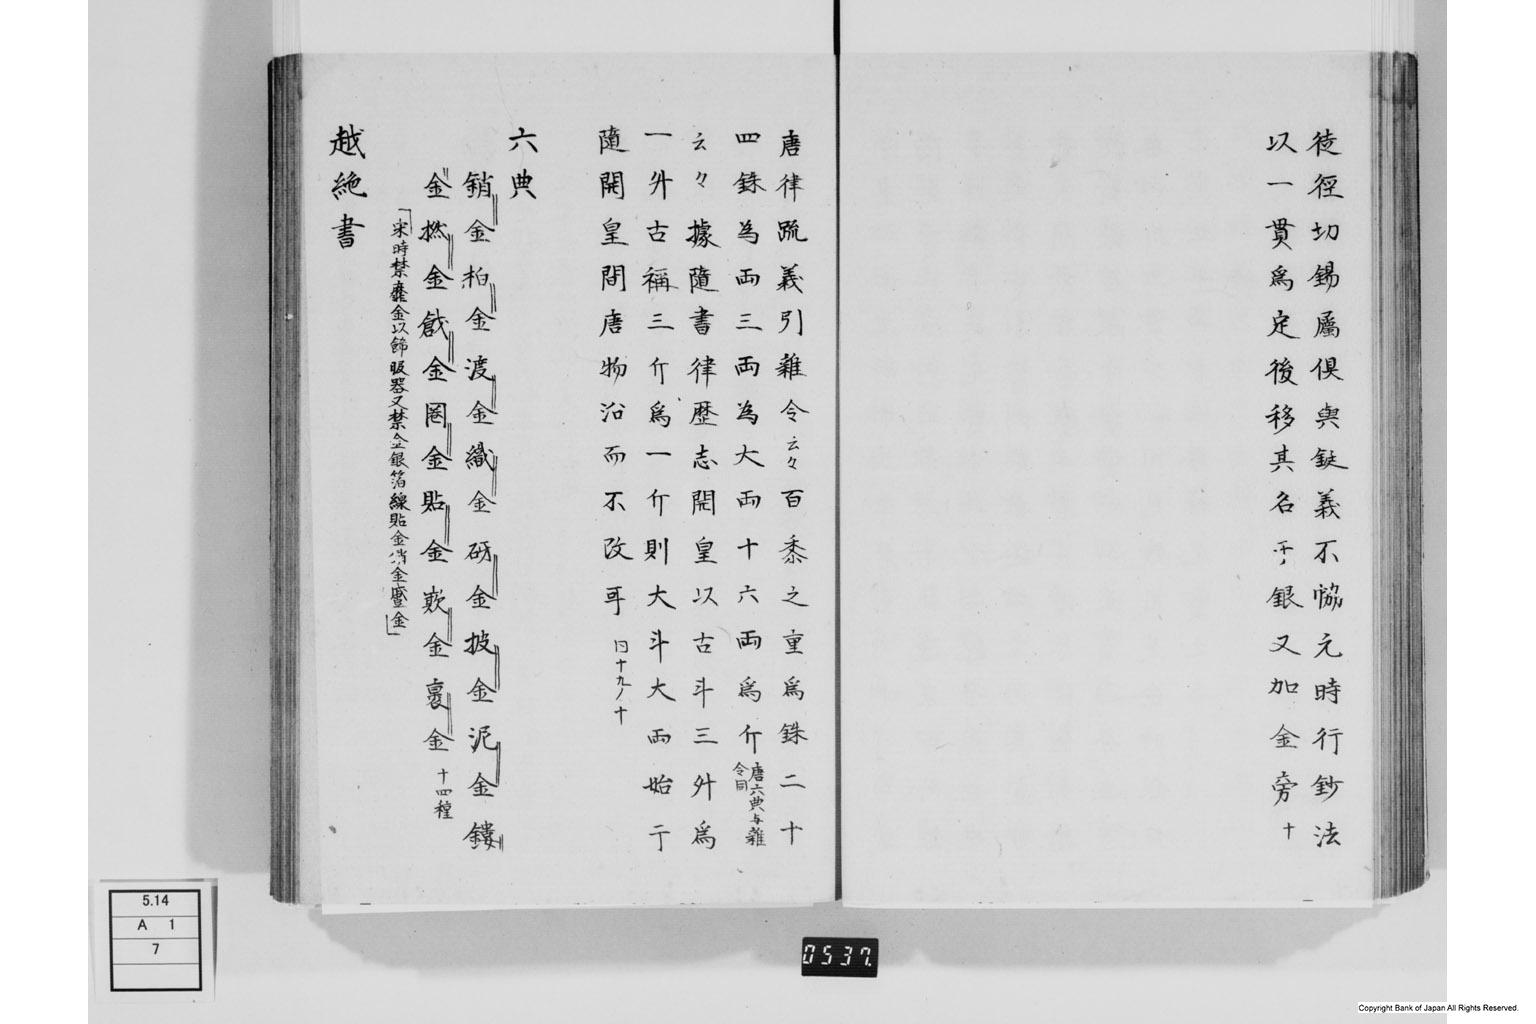 徒徑切錫屬俱與鋌義不恊元時行鈔法
以一貫爲定後移其名于銀又加金旁十
唐律疏義引雜令云々百黍之重爲銖二十
四銖為両三両為大両十六両爲斤唐六典与雜令同
云々據隨書律歷志開皇以古斗三升爲
一升古稱三斤爲一斤則大斗大両始于
隨開皇間唐物沿而不改耳 日十九ノ十
六典
銷金柏金渡金織金砑金披金泥金鏤
金撚金戧金圏金貼金嵌金裹金十四種
「宋時禁靡金以飾服器又禁金銀箔線貼金銷金蹙金」
越絶書
5.14
A 1
7
0537.
Copyright Bank of Japan All Rights Reserved.